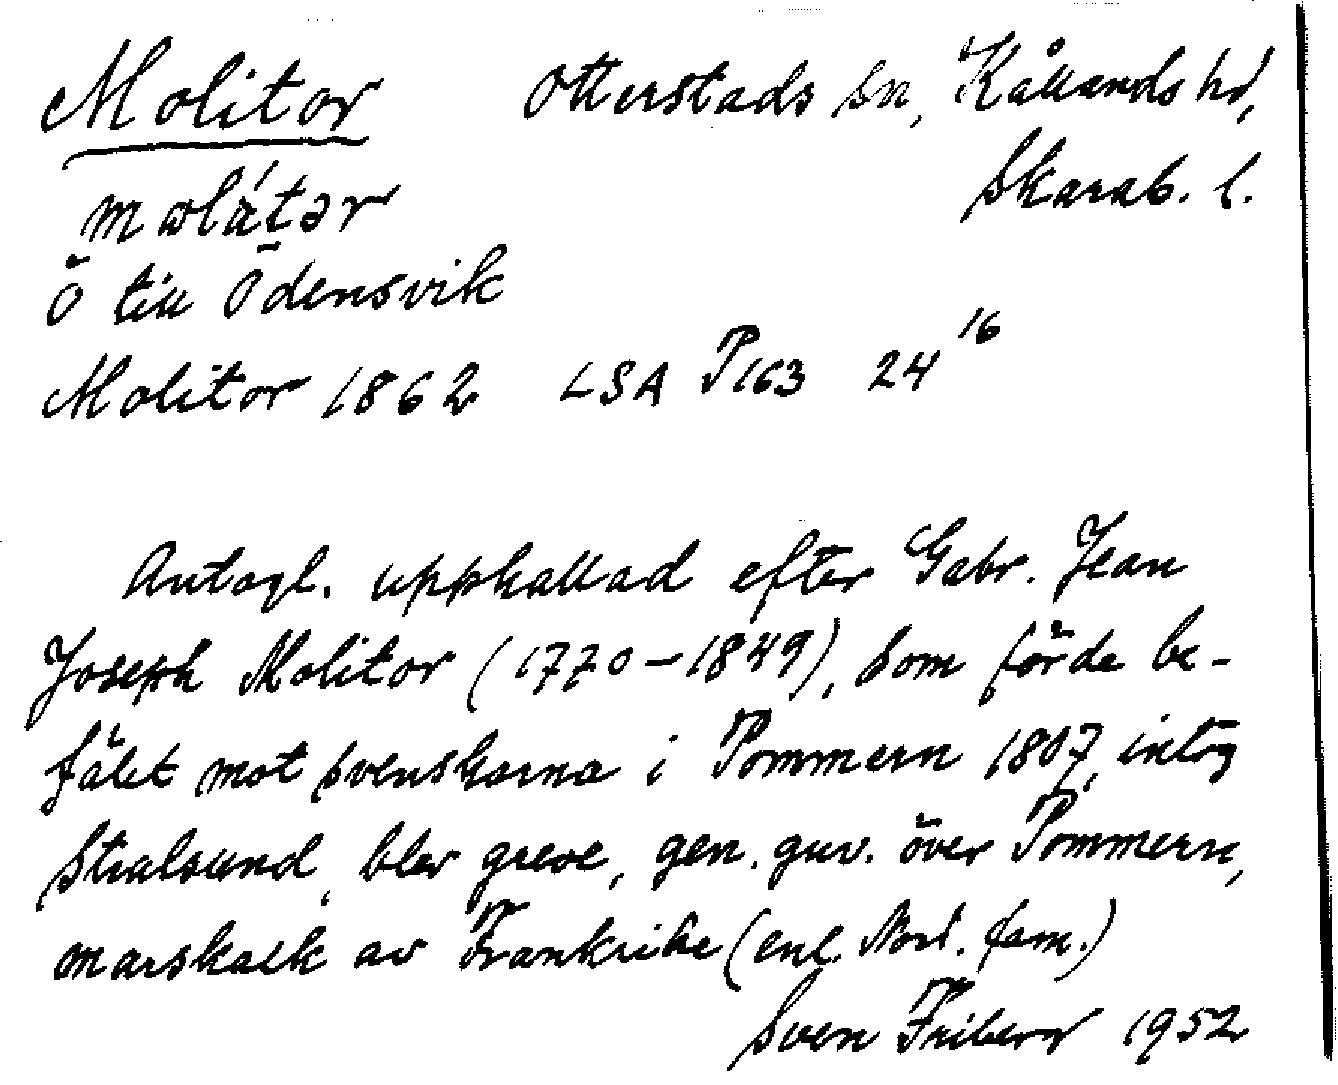 Molitor Otterstads sn, Kållands hd,
Skarab. l.
mωlátər
Ö till Odensvik
Molitor 1862 LSA P163 24 16
Antagl. uppkallad efter Gabr. Jean
Joseph Molitor (1770-1849), som förde be-
fälet mot svenskarna i Pommern 1807, intog
Stralsund, blev greve, gen. guv. över Pommern,
marskalk av Frankrike (enl. Nord. fam.)
Sven Friberg 1952